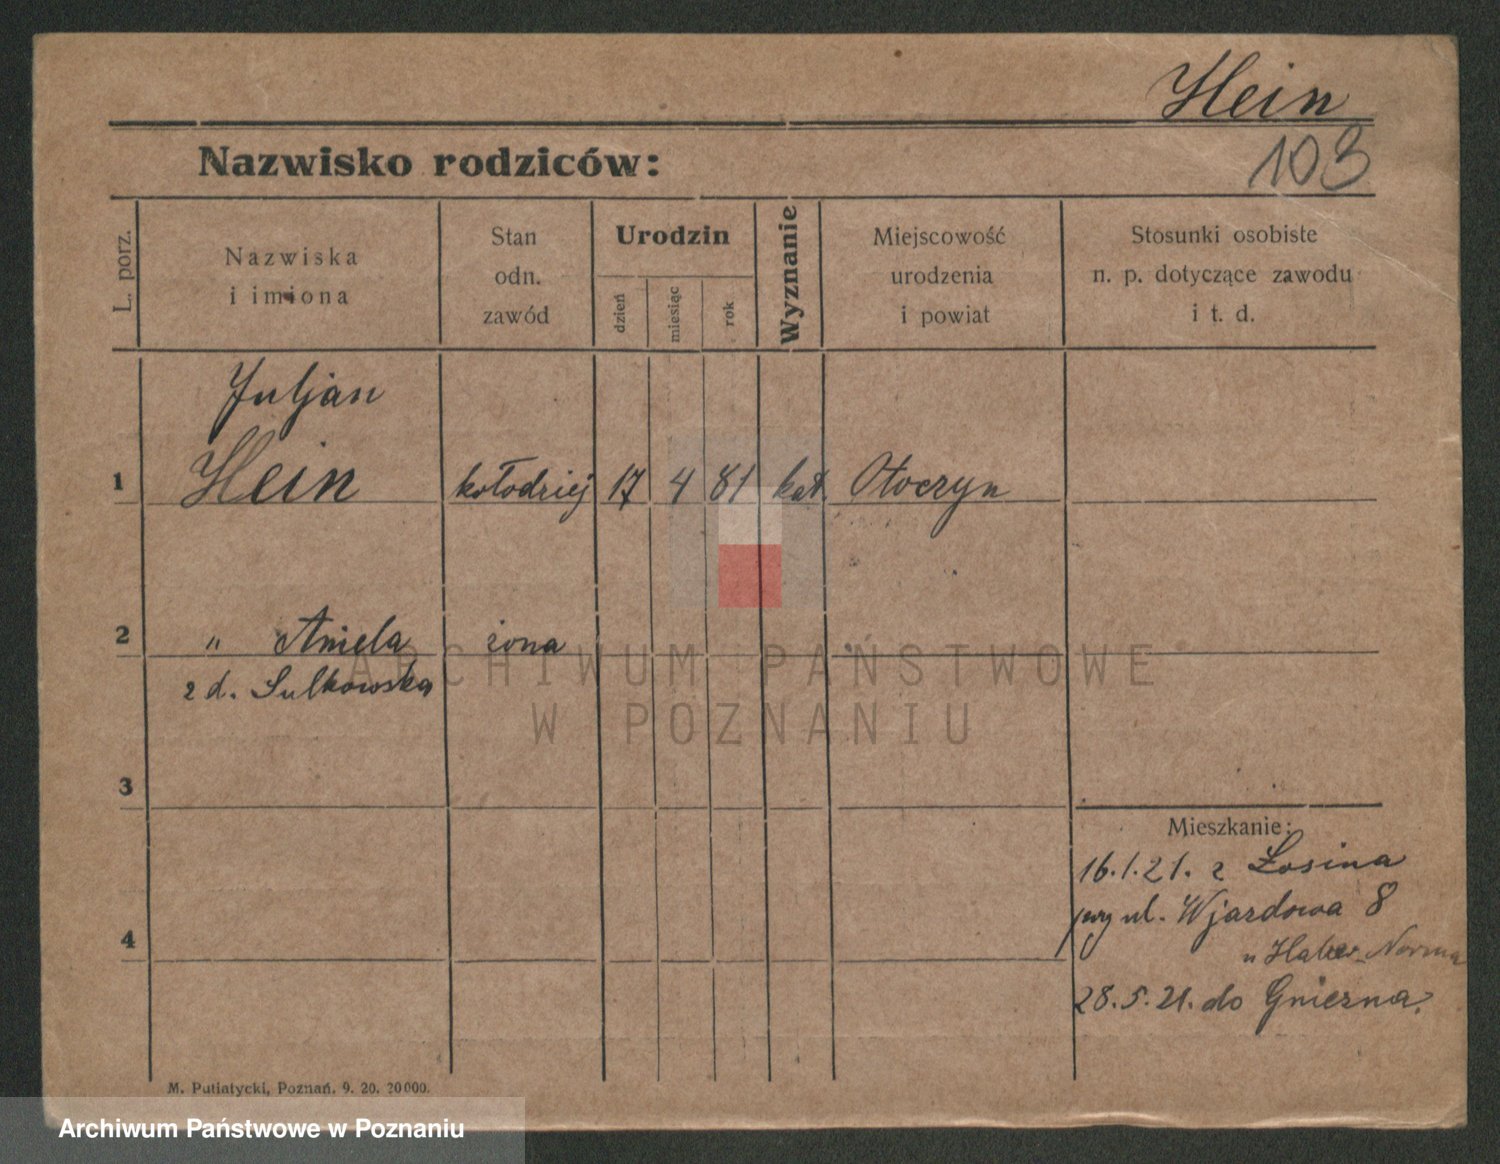 Hein
103
Nazwisko rodziców:
L. porz.
Nazwiska
i imiona
Stan
odn.
zawód
Urodzin
dzień
miesiąc
rok
Wyznanie
Miejscowość
urodzenia
i powiat
Stosunki osobiste
n. p. dotyczące zawodu
i t. d.
Juljan
1 Hein kołodziej 17 4 81 kat. Otoczyn
2 " Aniela żona
z d. Sulkowska
ARCHIWUM PAŃSTWOWE
W POZNANIU
3
Mieszkanie:
16.1.21. z Łosina
ul. Wjazdowa 8
4
u
28.5.21. do Gniezna.
M. Putiatycki, Poznań. 9. 20. 20000.
Archiwum Państwowe w Poznaniu